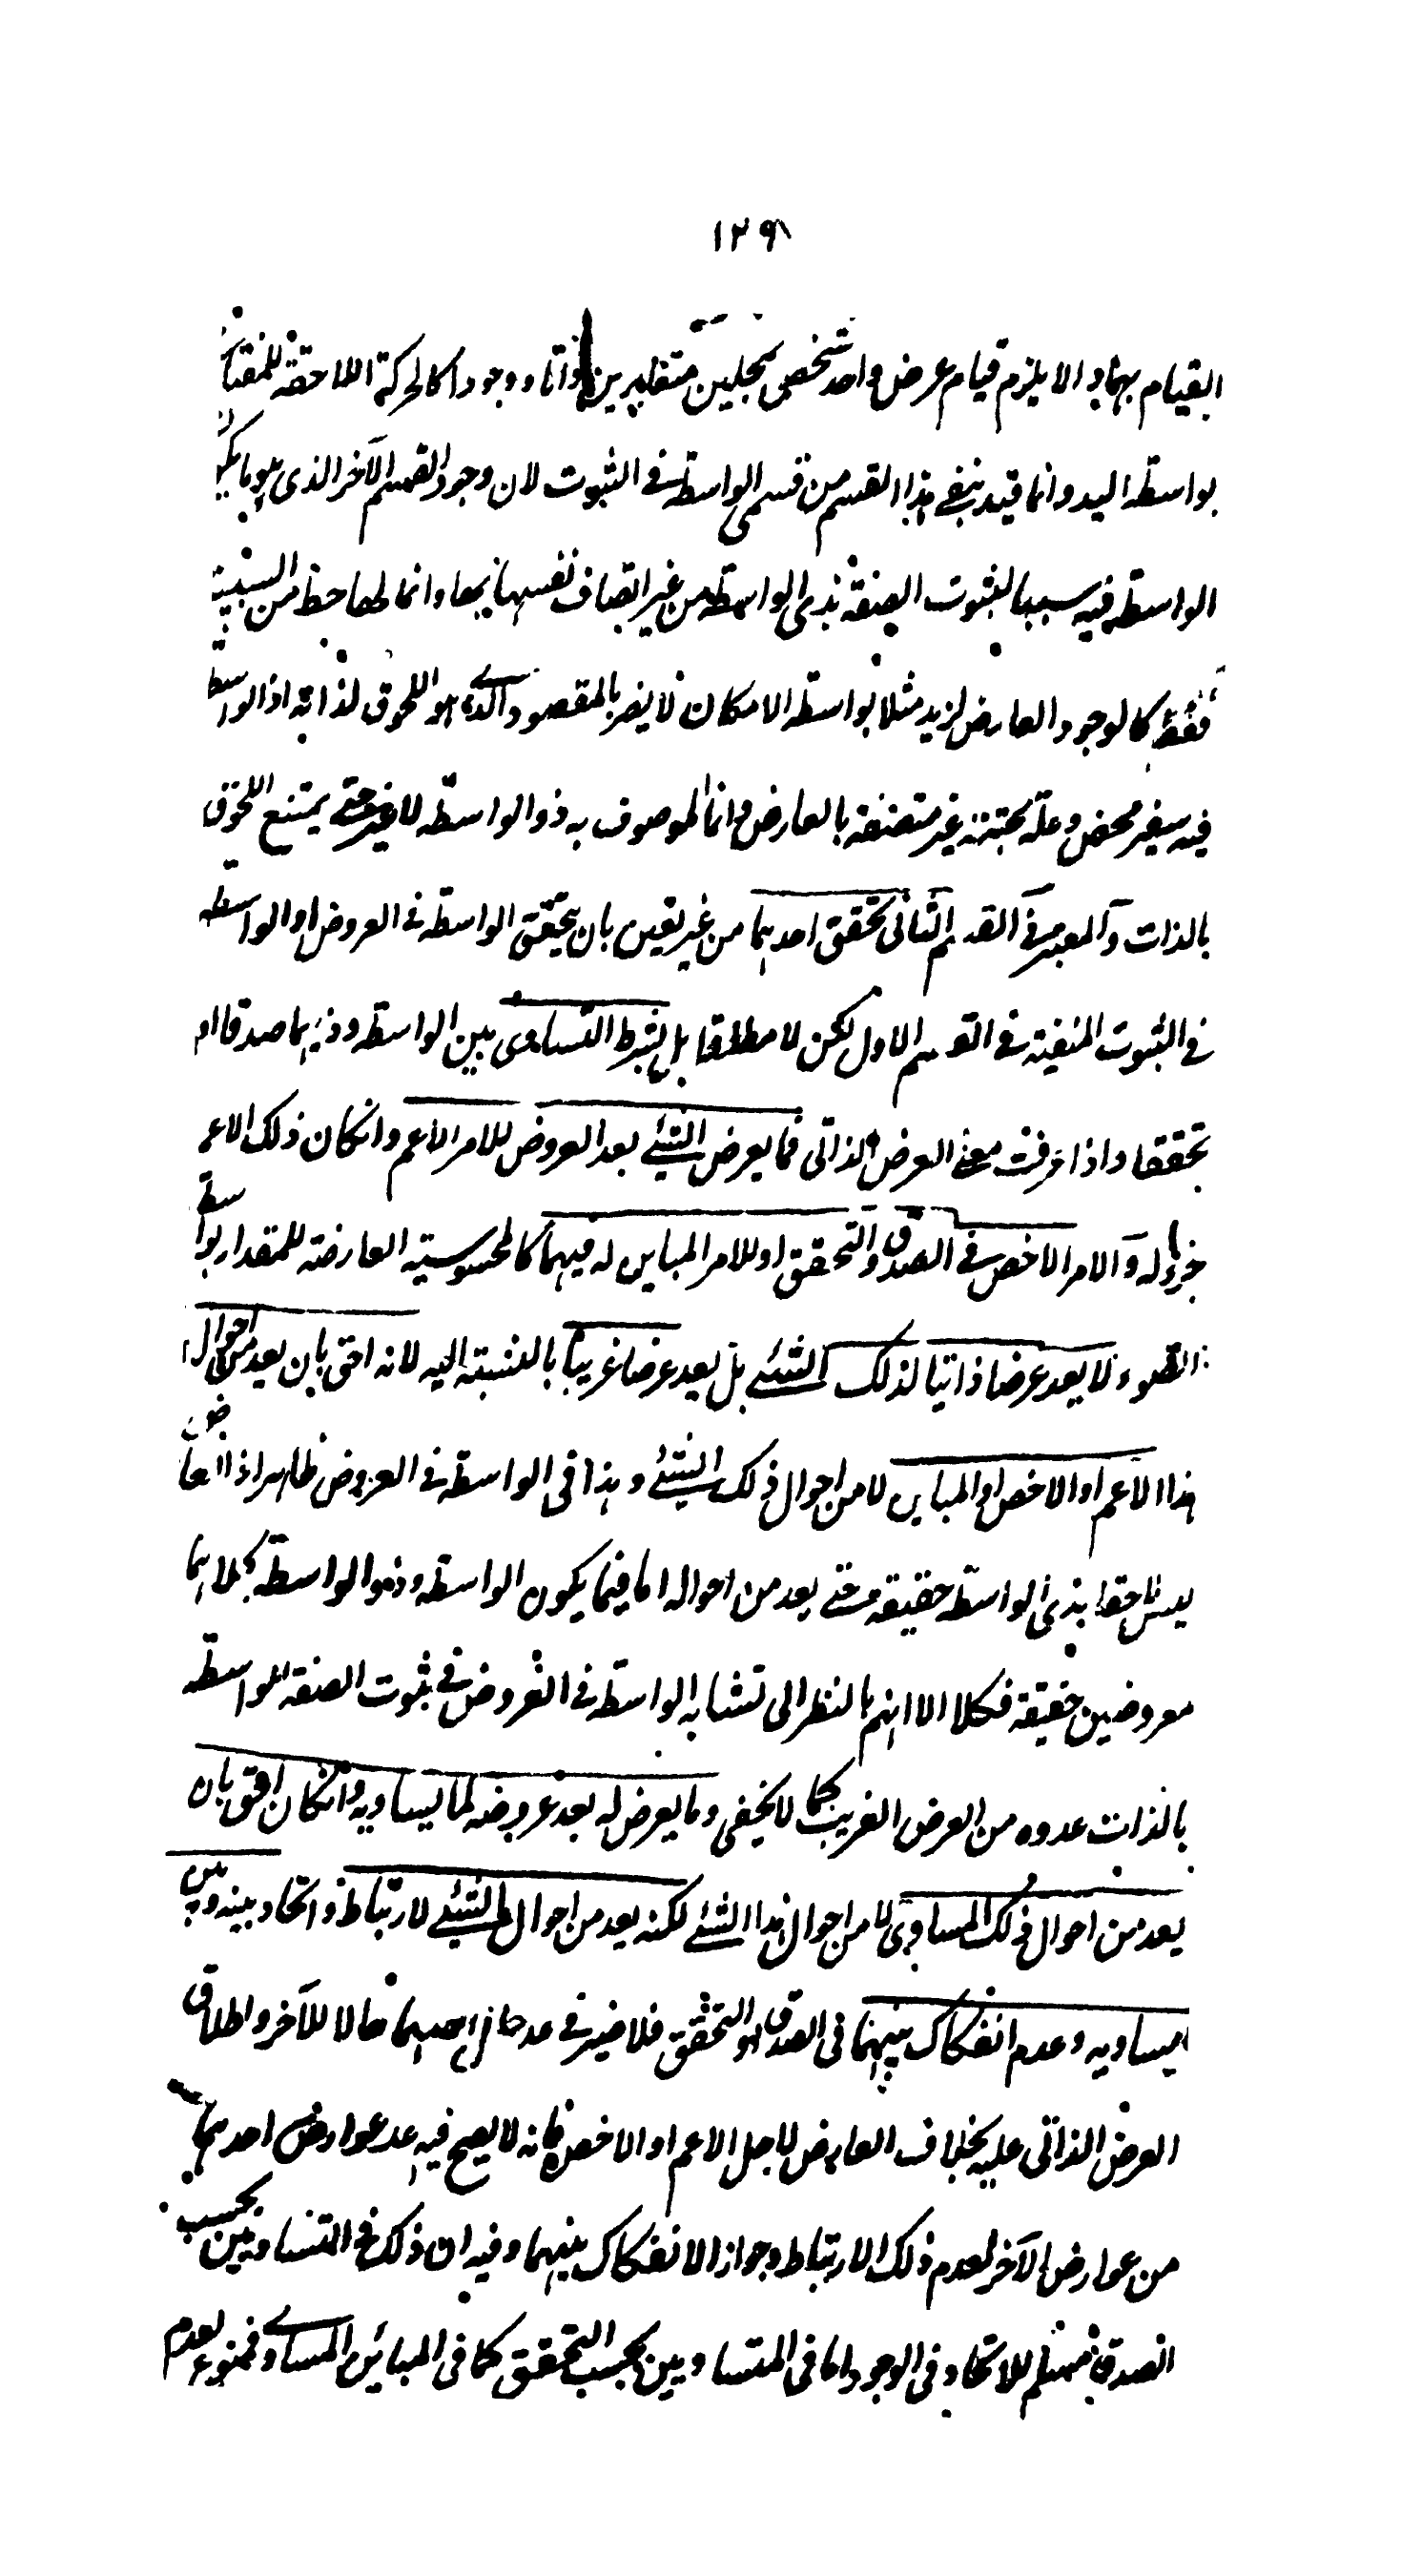 ١٢٩
القيام بهما والا يلزم قيام عرض واحد شخصى بمحلين متغايرين ذاتا ووجودا كالحركة اللاحقة للمفتاح
بواسطة اليد وانما قيد بنفى هذا القسم من قسمى الواسطة فى الثبوت لان وجود القسم الآخر الذى هو ما يكون
الواسطة فيه سببا لثبوت الصفة لذى الواسطة من غير اتصاف نفسها بها وانما لها حظ من السببية
فقط كالوجود العارض لزيد مثلا بواسطة الامكان فلا يضر بالمقصود الذى هو اللحوق لذاته اذ الواسطة
فيه سفير محض وعلة بحتة غير متصفة بالعارض وانما الموصوف به ذو الواسطة لا غير حتى يمتنع اللحوق
بالذات والمعتبر فى القسم الثانى تحقق احدهما من غير تعين بان يتحقق الواسطة فى العروض او الواسطة
فى الثبوت المنفية فى القسم الاول لكن لا مطلقا بل بشرط التساوى بين الواسطة وذيها صدقا او
تحققا واذا عرفت معنى العرض الذاتى فما يعرض الشئ بعد العروض للامر الاعم وانكان ذلك الاعم
جزءا له والامر الاخص فى الصدق والتحقق او للامر المباين له فيهما كالمحسوسية العارضة للمقدار بواسطة
الضوء فلا يعد عرضا ذاتيا لذلك الشئ بل يعد عرضا غريبا بالنسبة اليه لانه احق بان يعد من احوال
هذا الاعم او الاخص او المباين لا من احوال ذلك الشئ وهذا فى الواسطة فى العروض ظاهر اذ العارض
ليس لاحقا بذى الواسطة حقيقة حتى يعد من احواله اما فيما يكون الواسطة وذو الواسطة كلاهما
معروضين حقيقة فكلا الا انهم بالنظر الى تشابه الواسطة فى العروض فى ثبوت الصفة للواسطة
بالذات عدوه من العرض الغريب كما لا يخفى وما يعرض له بعد عروضه لما يساويه وانكان احق بان
يعد من احوال ذلك المساوى لا من احوال هذا الشئ لكنه يعد من احوال الشئ لارتباط واتحاد بينه وبين
ما يساويه وعدم انفكاك بينهما فى الصدق او التحقق فلا ضير فى عد حال احدهما حالا للآخر واطلاق
العرض الذاتى عليه بخلاف العارض لاجل الاعم او الاخص فانه لا يصح فيه عد عوارض احدهما
من عوارض الآخر لعدم ذلك الارتباط وجواز الانفكاك بينهما وفيه ان ذلك فى المتساويين بحسب
الصدق مسلم للاتحاد فى الوجود اما فى المتساويين بحسب التحقق كما فى المباين المساوى فممنوع لعدم